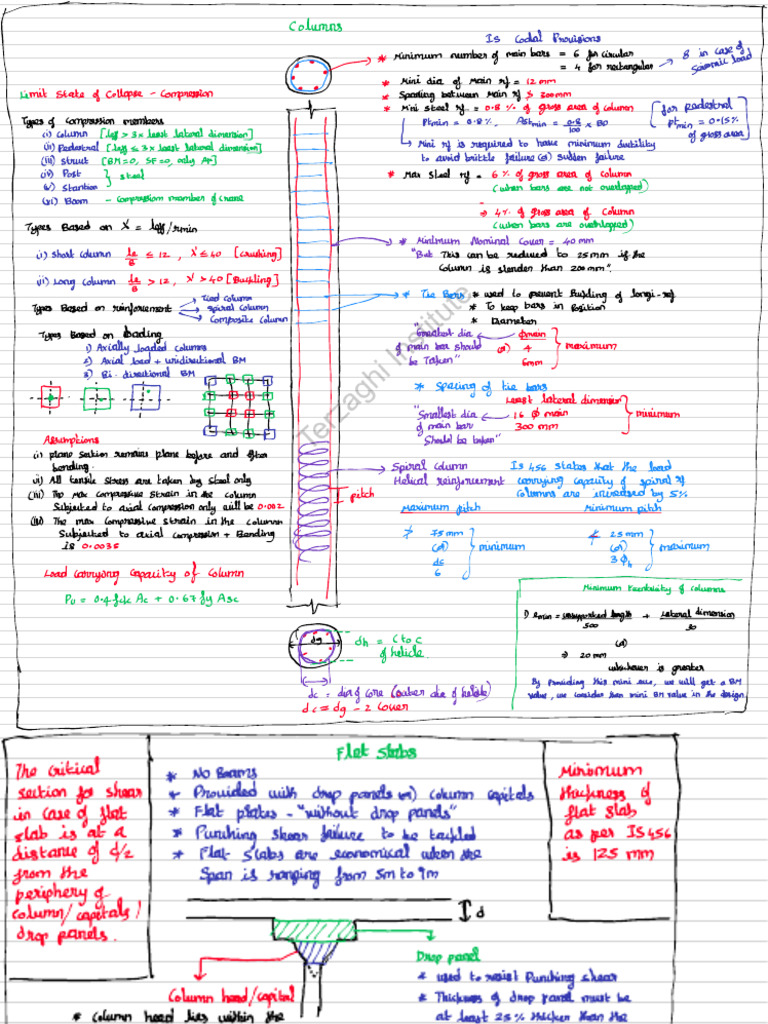 Columns
Is Codal Provisions
* Minimum number of main bars = 6 for circular
= 4 for rectangular
8 in case of
seismic load
* Mini dia of main rf = 12 mm
* Spacing between main rf ≯ 300mm
* Mini steel rf = 0.8 % of gross area of column
Ptmin = 0.8%, Astmin = 0.8/100 × BD
for pedestral
Ptmin = 0.15%
of gross area
Mini rf is required to have minimum ductility
to avoid brittle failure (or) sudden failure
* Max steel rf = 6 % of gross area of column
(when bars are not overlapped)
→ 4% of gross area of column
(when bars are overlapped)
* Minimum Nominal Cover = 40 mm
"But This can be reduced to 25 mm if the
column is slender than 200 mm".
* Tie Bars * used to prevent buckling of longi-rf
* To keep bars in position
* Diameter
"Smallest dia
of main bar should
be Taken"
ϕmain
(or) 4
6mm
maximum
* Spacing of tie bars
"Smallest dia
of main bar
should be taken"
Least lateral dimension
16 ϕ main
300 mm
minimum
Spiral column
Helical reinforcement
Is 456 states that the load
carrying capacity of spiral rf
columns are increased by 5%
Maximum pitch
Minimum pitch
* 75 mm
(or)
dc
6
minimum
* 25 mm
(or)
3 ϕh
maximum
Minimum Eccentricity of columns
1) emin = unsupported length/500 + Lateral dimension/30
(or)
⇒ 20 mm
whichever is greater
By providing this mini ecc, we will get a BM
value, we consider then mini BM value in the design
Limit State of Collapse - Compression
Types of compression members
(i) Column [leff > 3 × least lateral dimension]
(ii) Pedestral [leff ≤ 3 × least lateral dimension]
(iii) Strut [BM=0, SF=0, only AF]
(iv) Post
(v) Stantion
steel
(vi) Boom - compression member of crane
Types Based on λ = leff/rmin
(i) Short column le/B ≤ 12, λ ≤ 40 [crushing]
(ii) Long column le/B > 12, λ > 40 [Buckling]
Types Based on reinforcement
Tied column
Spiral column
Composite column
Types Based on loading
1) Axially loaded columns
2) Axial load + unidirectional BM
3) Bi-directional BM
Assumptions
(i) plane section remains plane before and after
bending.
(ii) All tensile stress are taken by steel only
(iii) The max compressive strain in the column
subjected to axial compression only will be 0.002
(iv) The max compressive strain in the column
Subjected to axial compression + Bending
is 0.0035
Load carrying capacity of column
Pu = 0.4 fck Ac + 0.67 fy Asc
pitch
Terzaghi Institute
dg
dh = C to C
of helicle
dc = dia of core (outer dia of helicle)
dc = dg - 2 cover
The critical
section for shear
in case of flat
slab is at a
distance of d/2
from the
periphery of
column/capitals/
drop panels.
Flat Slabs
* No Beams
* Provided with drop panels (or) column capitals
* Flat plates - "without drop panels"
* Punching shear failure to be tackled
* Flat slabs are economical when the
span is ranging from 5m to 9m
Minimum
thickness of
flat slab
as per IS 456
is 125 mm
d
Column head/capital
* Column head lies within the
Drop panel
* used to resist Punching shear
* Thickness of drop panel must be
at least 25% thicker than the